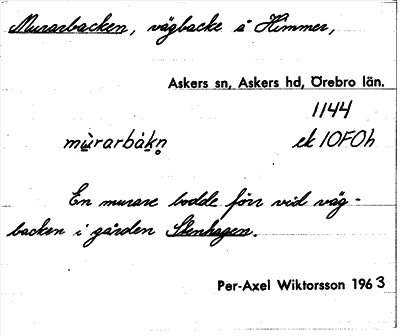 Murarbacken, vägbacke å Himmer,
Askers sn, Askers hd, Örebro län.
1144
mùrarbákn̥ ek 10F0h
En murare bodde förr vid väg-
backen i gården Stenhagen.
Per-Axel Wiktorsson 1963